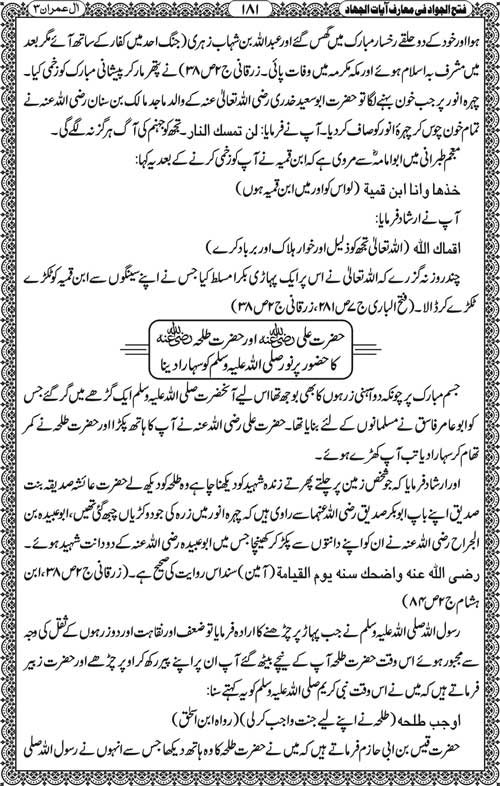 فتح الجواد فی معارف آیات الجہاد
۱۸۱
آل عمران ۳
ہوا اور خود کے دو حلقے رخسار مبارک میں گھس گئے اور عبداللہ بن شہاب زہری (جنگ احد میں کفار کے ساتھ آئے مگر بعد
میں مشرف بہ اسلام ہوئے اور مکہ مکرمہ میں وفات پائی۔ زرقانی ج ۲ ص ۳۸) نے پتھر مار کر پیشانی مبارک کو زخمی کیا۔
چہرہ انور پر جب خون بہنے لگا تو حضرت ابوسعید خدری رضی اللہ تعالیٰ عنہ کے والد ماجد مالک بن سنان رضی اللہ عنہ نے
تمام خون چوس کر چہرۂ انور کو صاف کر دیا۔ آپ نے فرمایا: لن تمسك النار۔ تجھ کو جہنم کی آگ ہرگز نہ لگے گی۔
معجم طبرانی میں ابوامامہؓ سے مروی ہے کہ ابن قمیہ نے آپ کو زخمی کرنے کے بعد یہ کہا:
خذها وانا ابن قمية (لو اس کو اور میں ابن قمیہ ہوں)
آپ نے ارشاد فرمایا:
اقماك الله (اللہ تعالیٰ تجھ کو ذلیل اور خوار ہلاک اور برباد کرے)
چند روز نہ گزرے کہ اللہ تعالیٰ نے اس پر ایک پہاڑی بکرا مسلط کیا جس نے اپنے سینگوں سے ابن قمیہ کو ٹکڑے
ٹکڑے کر ڈالا۔ (فتح الباری ج ۷ ص ۲۸۱، زرقانی ج ۲ ص ۳۸)
حضرت علی رضی اللہ عنہ اور حضرت طلحہ رضی اللہ عنہ
کا حضور پرنور صلی اللہ علیہ وسلم کو سہارا دینا
جسم مبارک پر چونکہ دو آہنی زرہوں کا بھی بوجھ تھا اس لیے آنحضرت صلی اللہ علیہ وسلم ایک گڑھے میں گر گئے جس
کو ابوعامر فاسق نے مسلمانوں کے لئے بنایا تھا۔ حضرت علی رضی اللہ عنہ نے آپ کا ہاتھ پکڑا اور حضرت طلحہ نے کمر
تھام کر سہارا دیا تب آپ کھڑے ہوئے۔
اور ارشاد فرمایا کہ جو شخص زمین پر چلتے پھرتے زندہ شہید کو دیکھنا چاہے وہ طلحہ کو دیکھ لے حضرت عائشہ صدیقہ بنت
صدیق اپنے باپ ابوبکر صدیق رضی اللہ عنہما سے راوی ہیں کہ چہرہ انور میں زرہ کی جو دو کڑیاں چبھ گئی تھیں، ابوعبیدہ بن
الجراح رضی اللہ عنہ نے ان کو اپنے دانتوں سے پکڑ کر کھینچا جس میں ابوعبیدہ رضی اللہ عنہ کے دو دانت شہید ہوئے۔
رضى الله عنه واضحك سنه يوم القيامة (آمین) سند اس روایت کی صحیح ہے۔ (زرقانی ج ۲ ص ۳۸، ابن
ہشام ج ۲ ص ۸۴)
رسول اللہ صلی اللہ علیہ وسلم نے جب پہاڑ پر چڑھنے کا ارادہ فرمایا تو ضعف اور نقاہت اور دو زرہوں کے ثقل کی وجہ
سے مجبور ہوئے اس وقت حضرت طلحہ آپ کے نیچے بیٹھ گئے آپ ان پر اپنے پیر رکھ کر اوپر چڑھے اور حضرت زبیر
فرماتے ہیں کہ میں نے اس وقت نبی کریم صلی اللہ علیہ وسلم کو یہ کہتے سنا:
اوجب طلحه (طلحہ نے اپنے لیے جنت واجب کر لی) (رواہ ابن اسحٰق)
حضرت قیس بن ابی حازم فرماتے ہیں کہ میں نے حضرت طلحہ کا وہ ہاتھ دیکھا جس سے انہوں نے رسول اللہ صلی